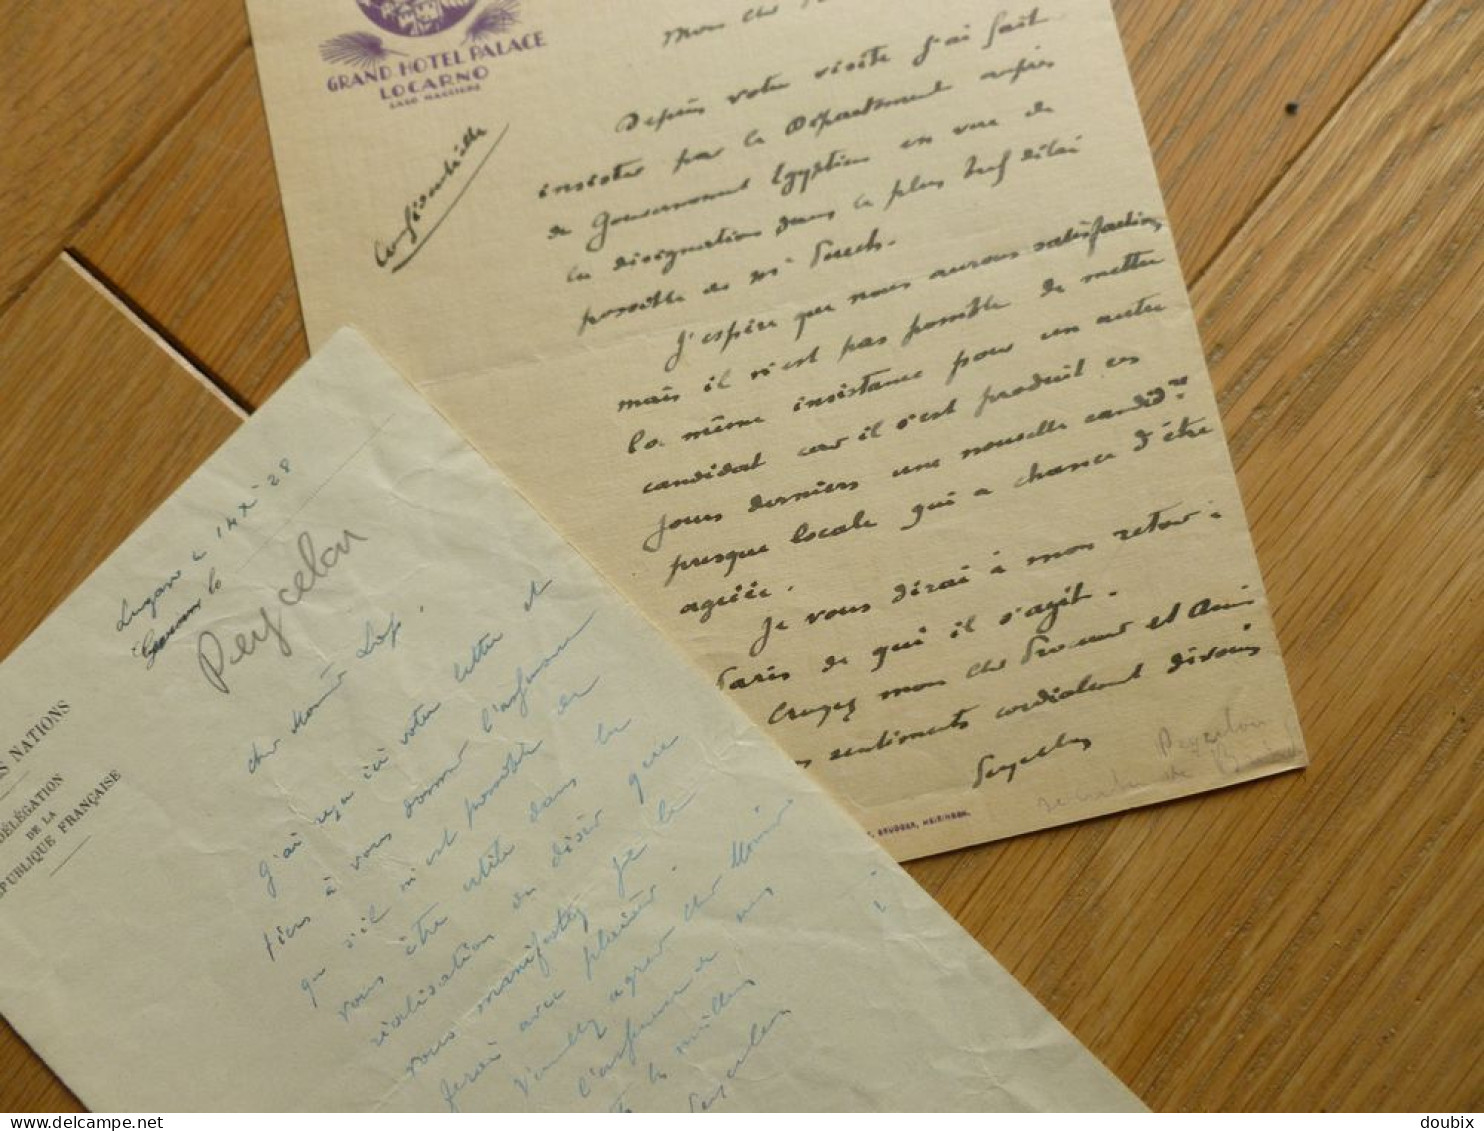 GRAND HOTEL PALACE
LOCARNO
LAGO MAGGIORE
Confidentielle
Mon cher
Depuis votre visite j'ai fait
insister par le Département auprès
du Gouvernement Egyptien en vue de
la désignation dans le plus bref délai
possible de Mr
J'espère que nous aurons satisfaction,
mais il n'est pas possible de mettre
la même insistance pour un autre
candidat car il s'est produit ces
jours derniers une nouvelle candidre
presque locale qui a chance d'être
agréée.
Je vous dirai à mon retour à
Paris de qui il s'agit.
Croyez mon cher et Ami
sentiments cordialement dévoués
Peycelon
BRUGGER, MEIRINGEN.
S NATIONS
DÉLÉGATION
DE LA
RÉPUBLIQUE FRANÇAISE
Lugano le 14 XII 28
Genève le
Peycelon
Cher Monsieur
J'ai reçu ici votre lettre et
tiens à vous donner l'assurance
que s'il m'est possible de
vous être utile dans la
réalisation du désir que
vous manifestez je le
ferai avec plaisir.
Veuillez agréer cher Monsieur
l'assurance de mes
meilleurs
Peycelon
doubix